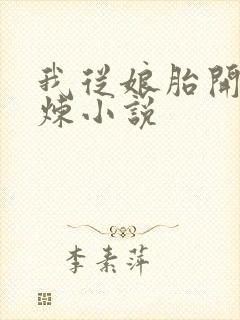 我从娘胎開
煉小説
李素萍